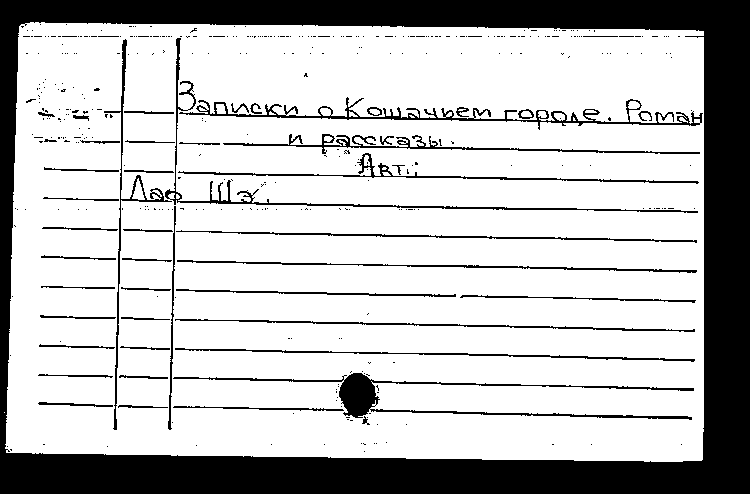 Записки о Кошачьем городе. Роман
и рассказы.
Авт.:
Лао Шэ.